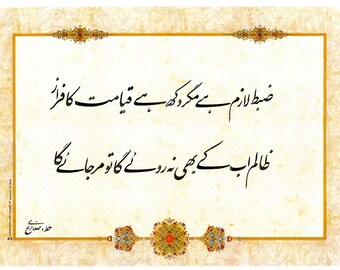 ضبط لازم ہے مگر دکھ ہے قیامت کا فرازؔ
ظالم اب کے بھی نہ روئے گا تو مر جائے گا